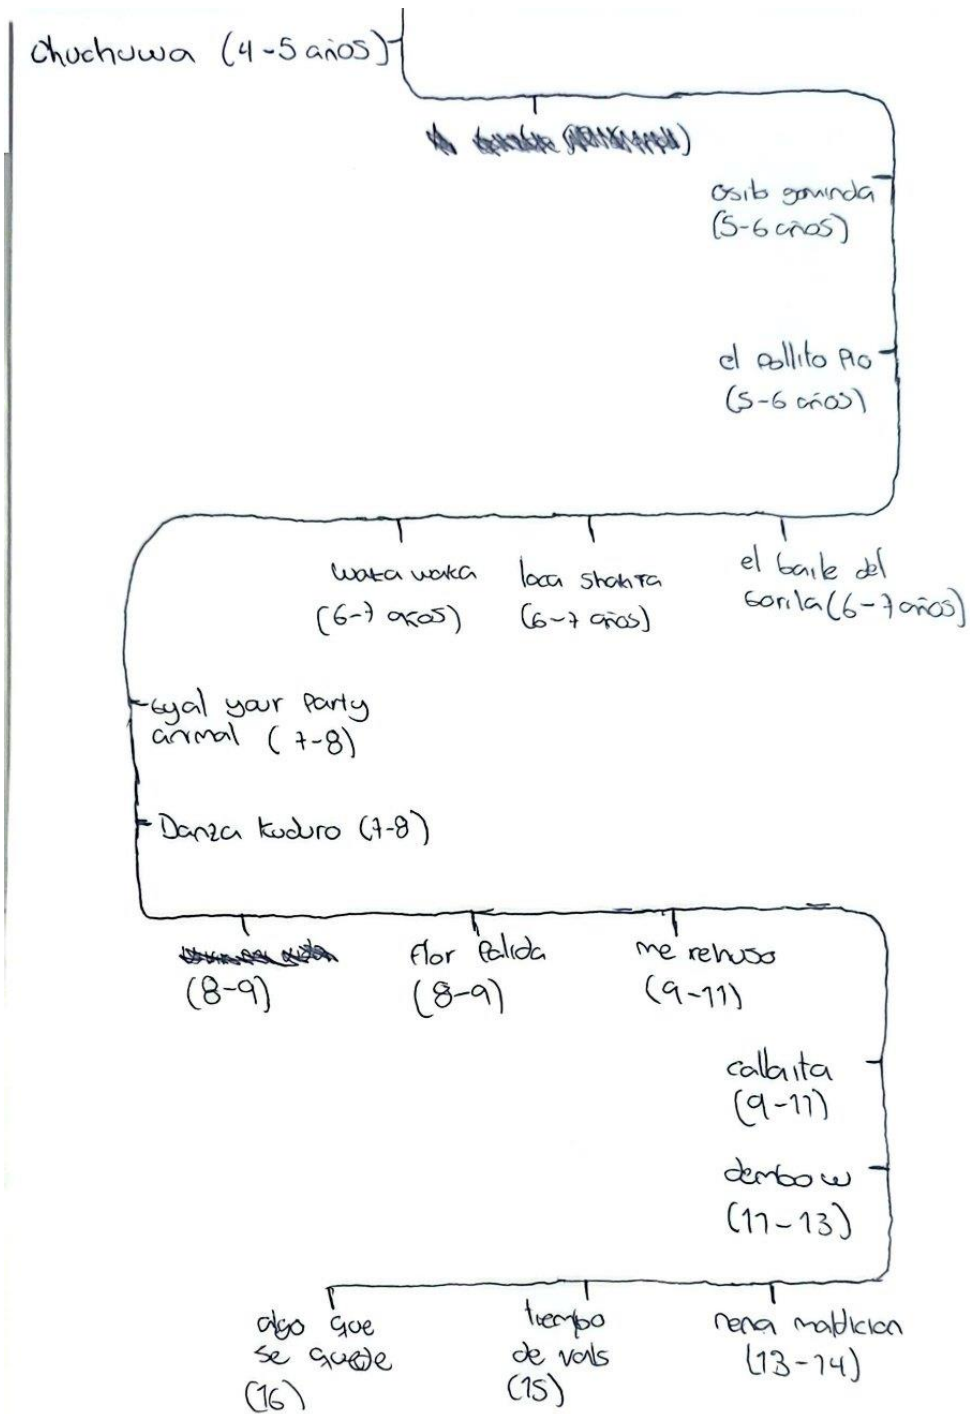 Chuchuwa (4-5 años)
osito gominola
(5-6 años)
el pollito Pio
(5-6 años)
waka waka
(6-7 años)
loca shakira
(6-7 años)
el baile del
Gorila (6-7 años)
Gyal your Party
animal (7-8)
Danza kuduro (7-8)
(8-9)
flor Palida
(8-9)
me rehuso
(9-11)
callaita
(9-11)
dembow
(11-13)
algo que
se quede
(16)
tiempo
de vals
(15)
nena maldicion
(13-14)